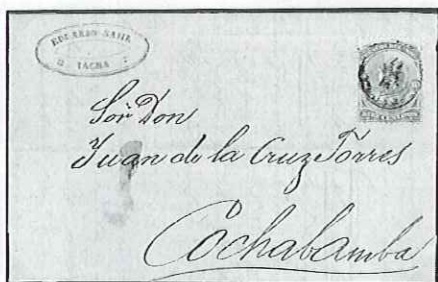 EDUARDO
TACNA
Sor Don
Juan de la Cruz Torres
Cochabamba